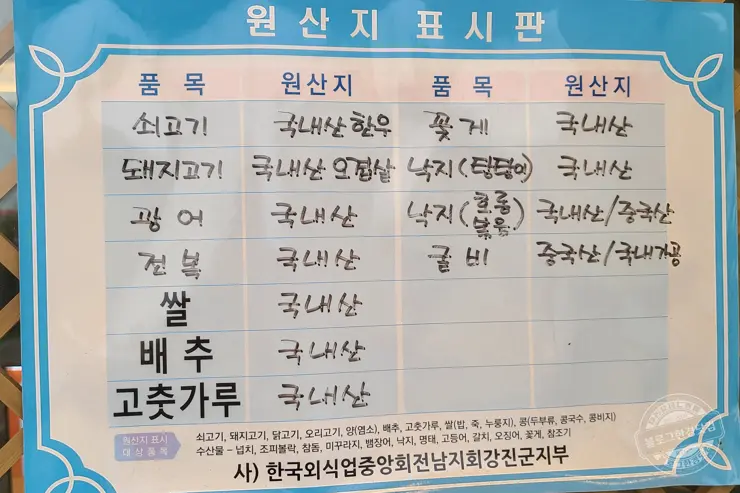 원산지 표시판
품목 원산지 품목 원산지
쇠고기 국내산 한우 꽃게 국내산
돼지고기 국내산 오겹살 낙지(탕탕이) 국내산
광어 국내산 낙지(초롱 볶음) 국내산/중국산
전복 국내산 굴비 중국산/국내가공
쌀 국내산
배추 국내산
고춧가루 국내산
원산지 표시 대상품목
쇠고기, 돼지고기, 닭고기, 오리고기, 양(염소), 배추, 고춧가루, 쌀(밥, 죽, 누룽지), 콩(두부류, 콩국수, 콩비지)
수산물 - 넙치, 조피볼락, 참돔, 미꾸라지, 뱀장어, 낙지, 명태, 고등어, 갈치, 오징어, 꽃게, 참조기
사) 한국외식업중앙회전남지회강진군지부